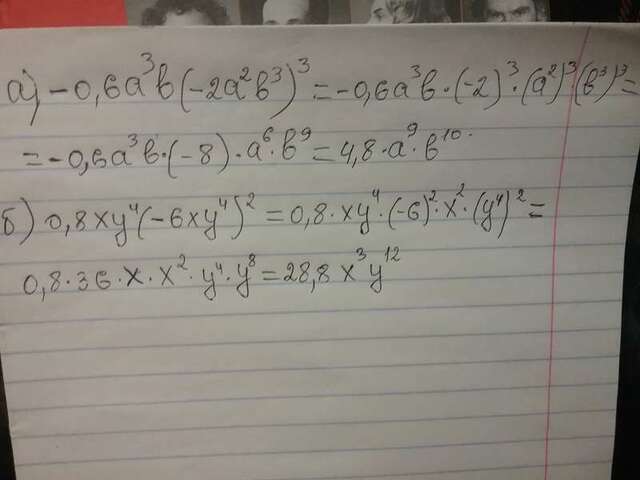 а) -0,6a³b(-2a²b³)³=-0,6a³b·(-2)³·(a²)³(b³)³=
=-0,6a³b·(-8)·a⁶·b⁹=4,8·a⁹·b¹⁰.
б) 0,8xy⁴(-6xy⁴)²=0,8·xy⁴·(-6)²·x²·(y⁴)²=
0,8·36·x·x²·y⁴·y⁸=28,8x³y¹²